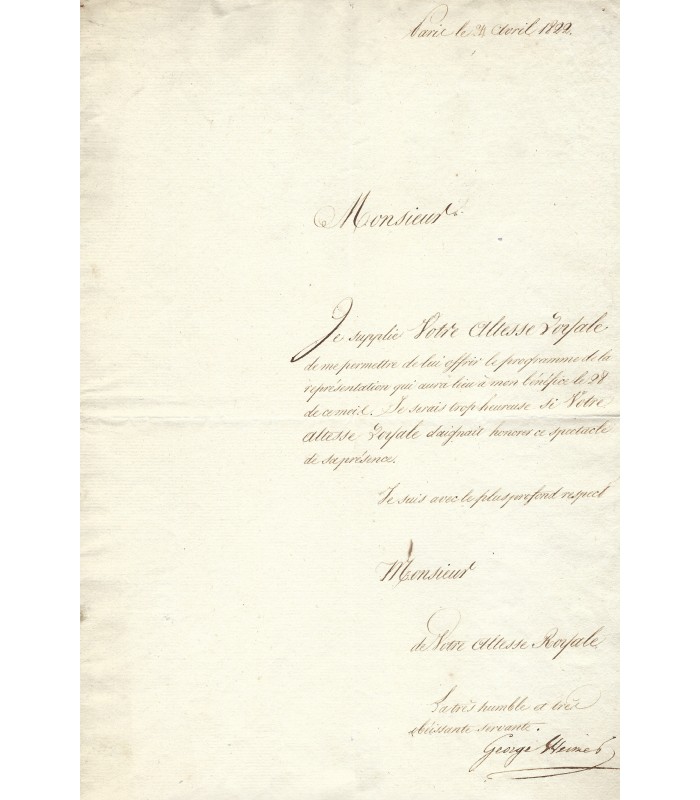 Paris le 24 Avril 1822.
Monsieur
Je supplie Votre Altesse Royale
de me permettre de lui offrir le programme de la
représentation qui aura lieu à mon bénéfice le 28
de ce mois. Je serais trop heureuse si Votre
Altesse Royale daignait honorer ce spectacle
de sa présence.
Je suis avec le plus profond respect
Monsieur
de Votre Altesse Royale
La très humble et très
obéissante servante.
George